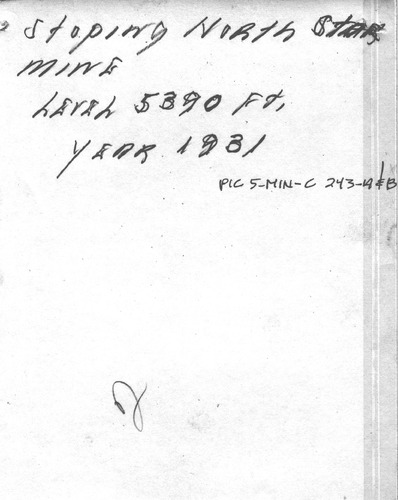 Stoping North Star
MINE
LEVEL 5390 Ft.
YEAR 1931
PIC 5-MIN-C 243-A&B